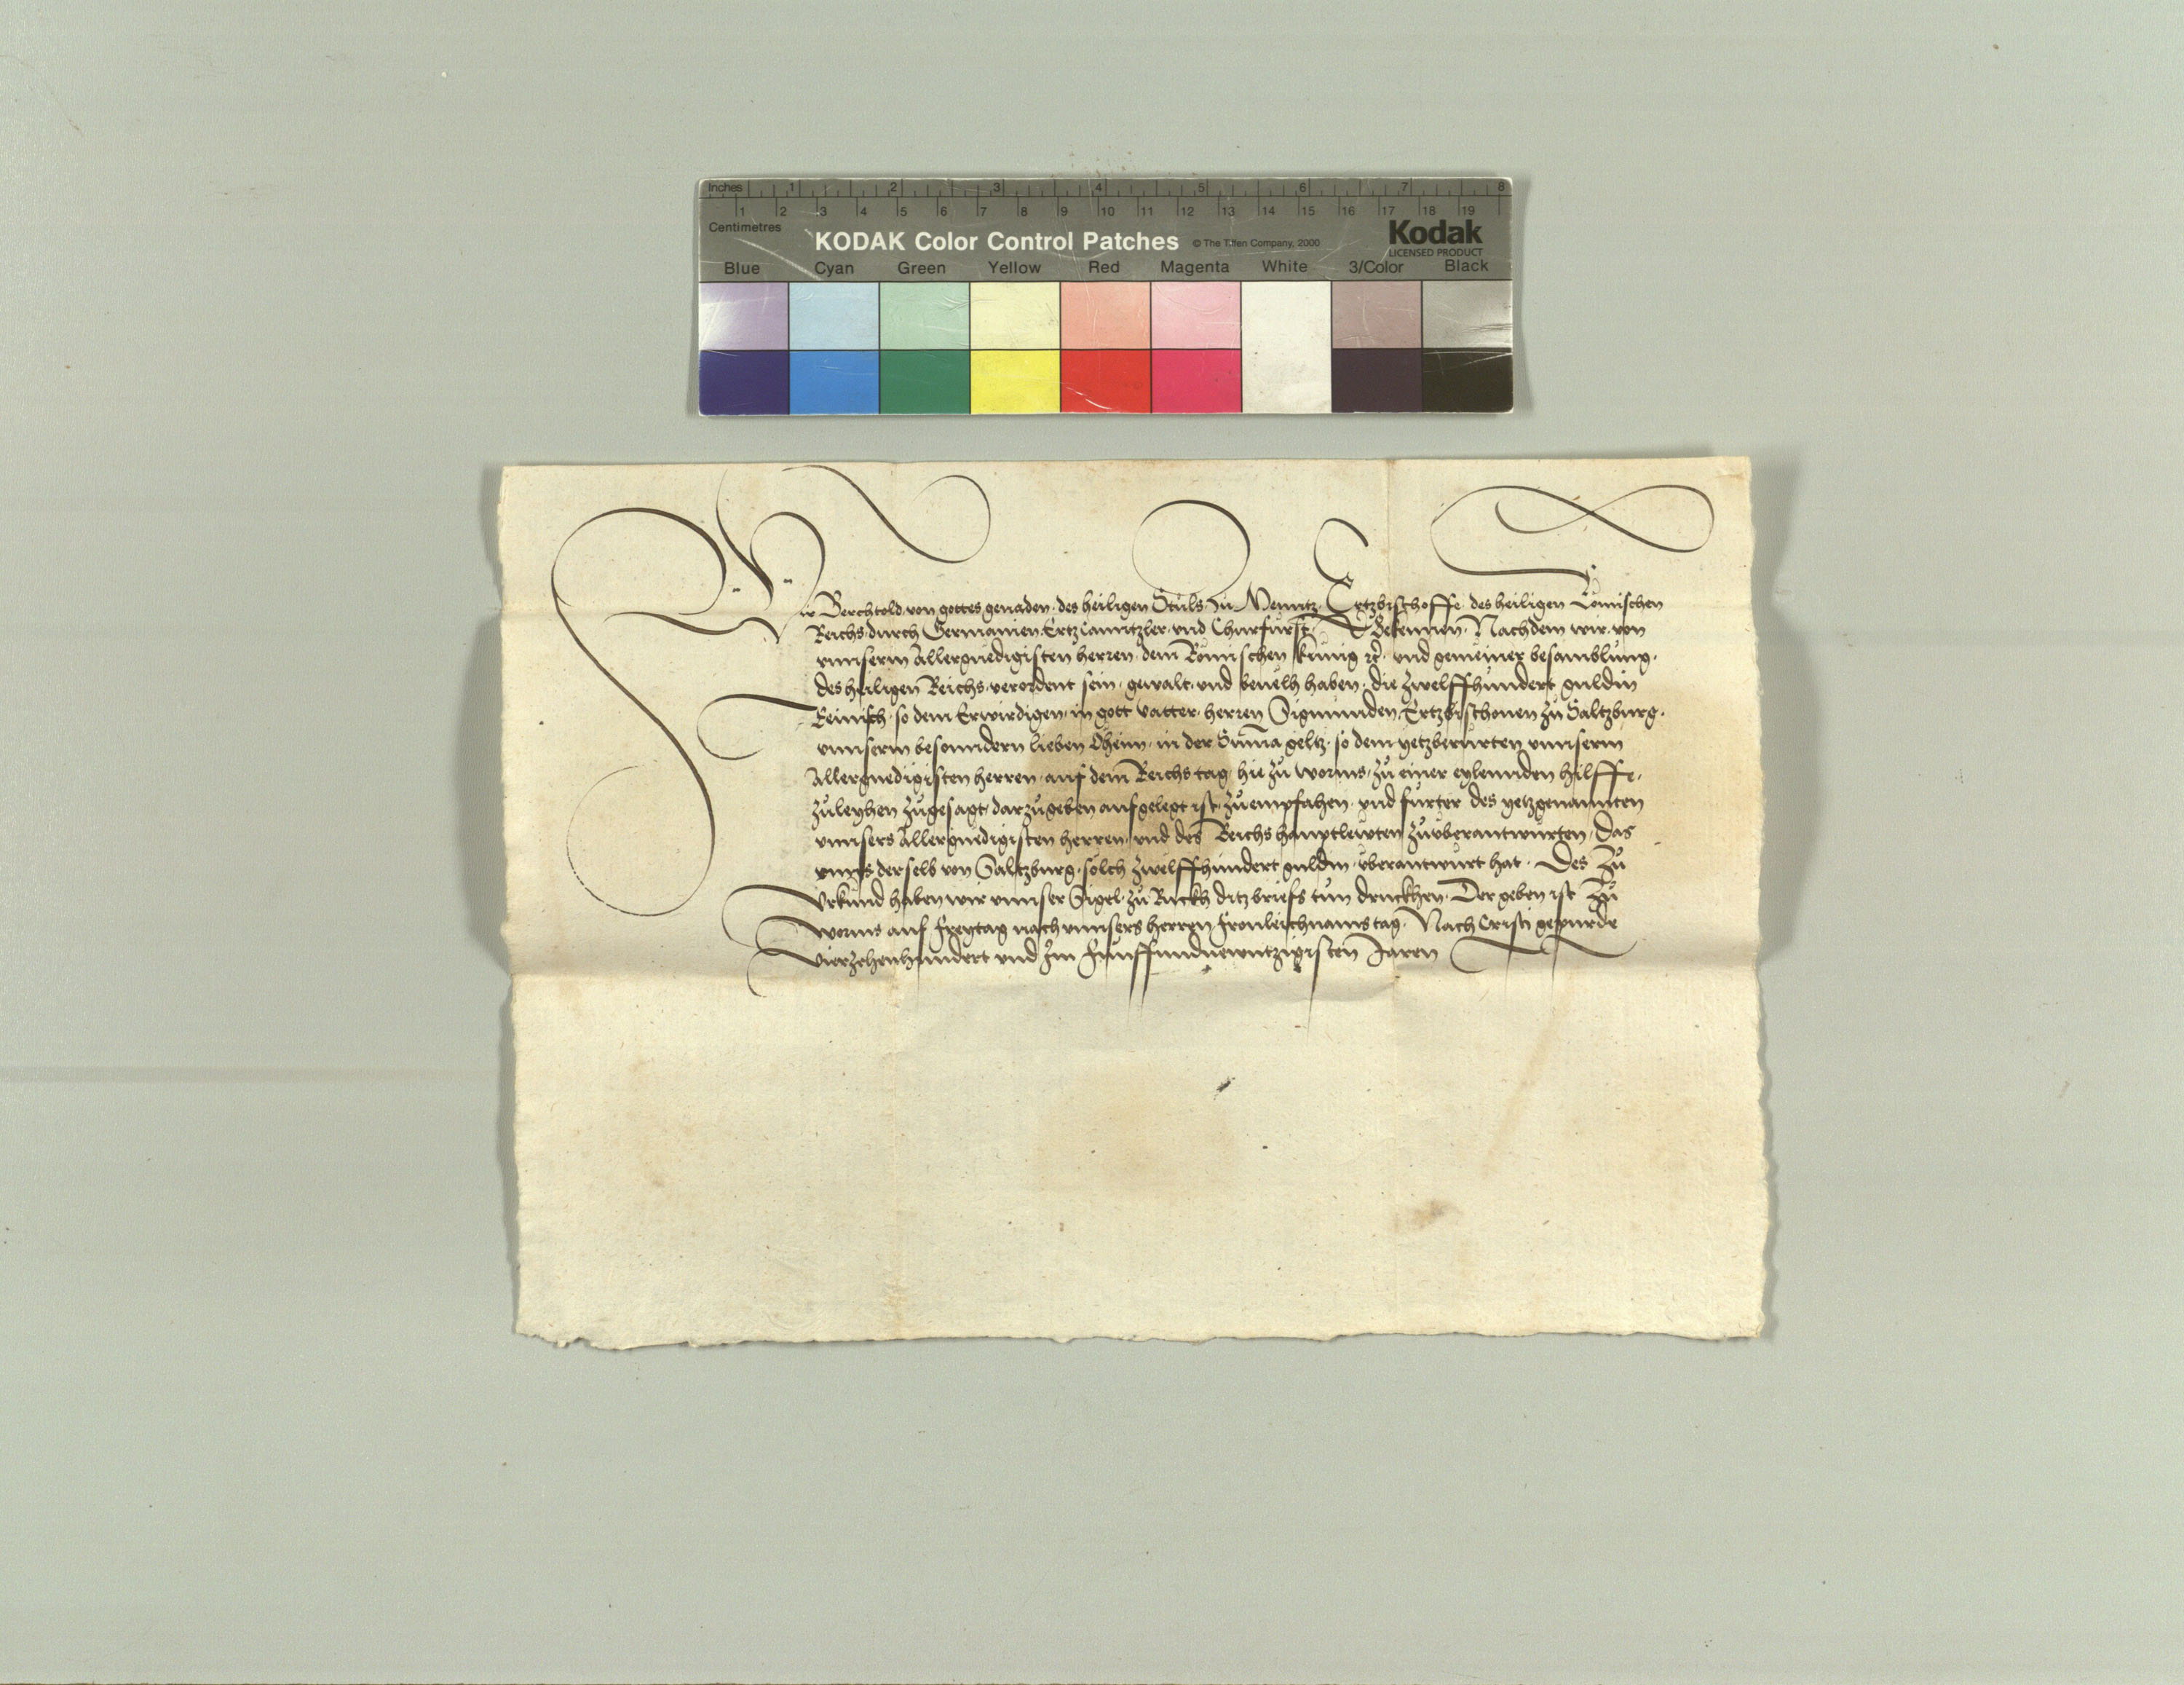 Inches 1 2 3 4 5 6 7 8
1 2 3 4 5 6 7 8 9 10 11 12 13 14 15 16 17 18 19
Centimetres
KODAK Color Control Patches © The Tiffen Company, 2000 Kodak
LICENSED PRODUCT
Blue Cyan Green Yellow Red Magenta White 3/Color Black
Wir Berchtold von gottes genaden des heiligen Stůls zu Menntz Ertzbischoffe des heiligen Römischen
Reichs durch Germanien Ertzcanntzler vnd Churfürst Bekennen Nachdem wir von
vnnserm Allergnedigisten herren dem Römischen künig etc vnd gemeiner besamblung
des heiligen Reichs verordent sein gewalt vnd beuelh haben die zwelffhundert guldin
Reinisch so dem Erwirdigen in gott vatter herren Sigmunden Ertzbischouen zů Saltzburg
vnnserm besonndern lieben Öheim in der Suma geltz so dem yetzberürten vnnserm
Allergnedigisten herren auf dem Reichs tag hie zů worms zů einer eylennden hilffe
zůleyhen zůgesagt darzůgeben aufgelegt ist zůempfahen vnd fürter des yetzgenannten
vnnsers Allergnedigisten herren vnd des Reichs hauptlewten zůüberantwurten Das
vnns derselb von Saltzburg solch zwelffhundert guldin überantwurt hat Des zů
Vrkund haben wir vnnser Sigel zů Ruckh ditz briefs tůn druckhen Der geben ist zů
worms auf freytag nach vnnsers herren fronleichnams tag Nach Cristi gepurde
vierzehenhundert vnd Im fünffundnewntzigisten Jaren